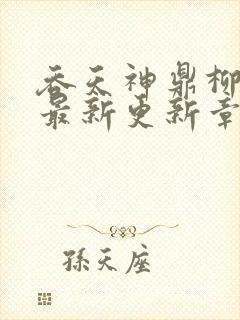 吞天神鼎柳
最新更新章
孫天座